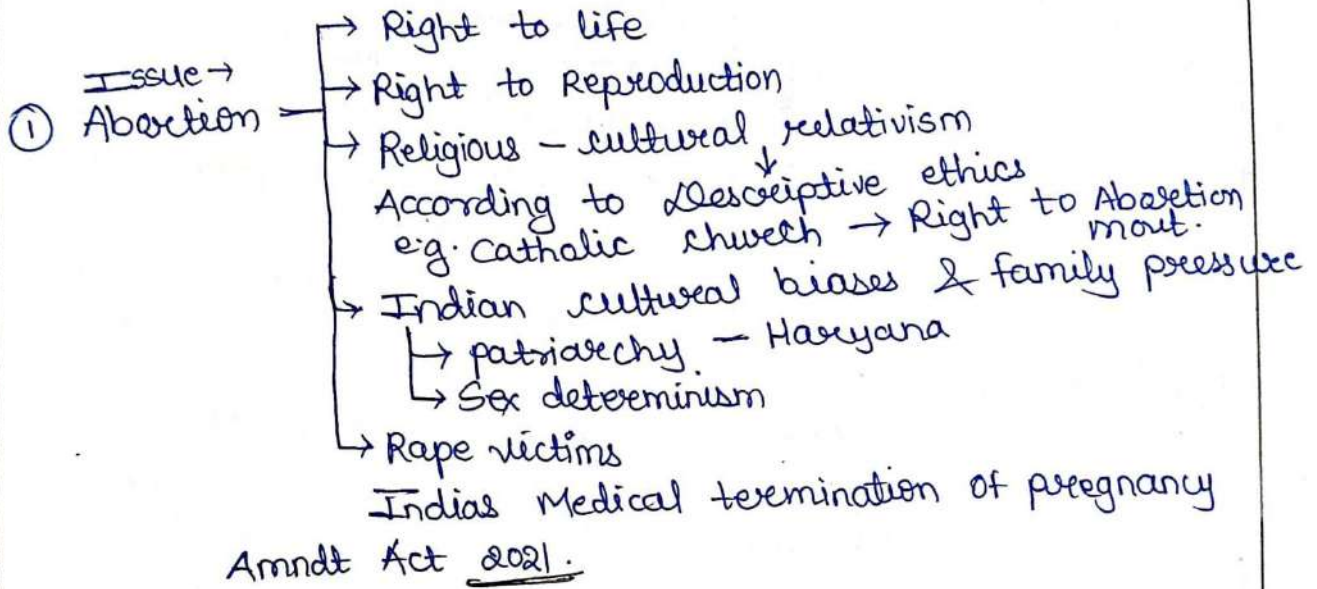 → Right to life
Issue →
① Abortion → Right to Reproduction
→ Religious - cultural relativism
↓
According to Descriptive ethics
e.g. Catholic church → Right to Abortion
mout.
→ Indian cultural biases & family pressure
→ patriarchy - Haryana
→ Sex determinism
→ Rape victims
Indias Medical termination of pregnancy
Amndt Act 2021.